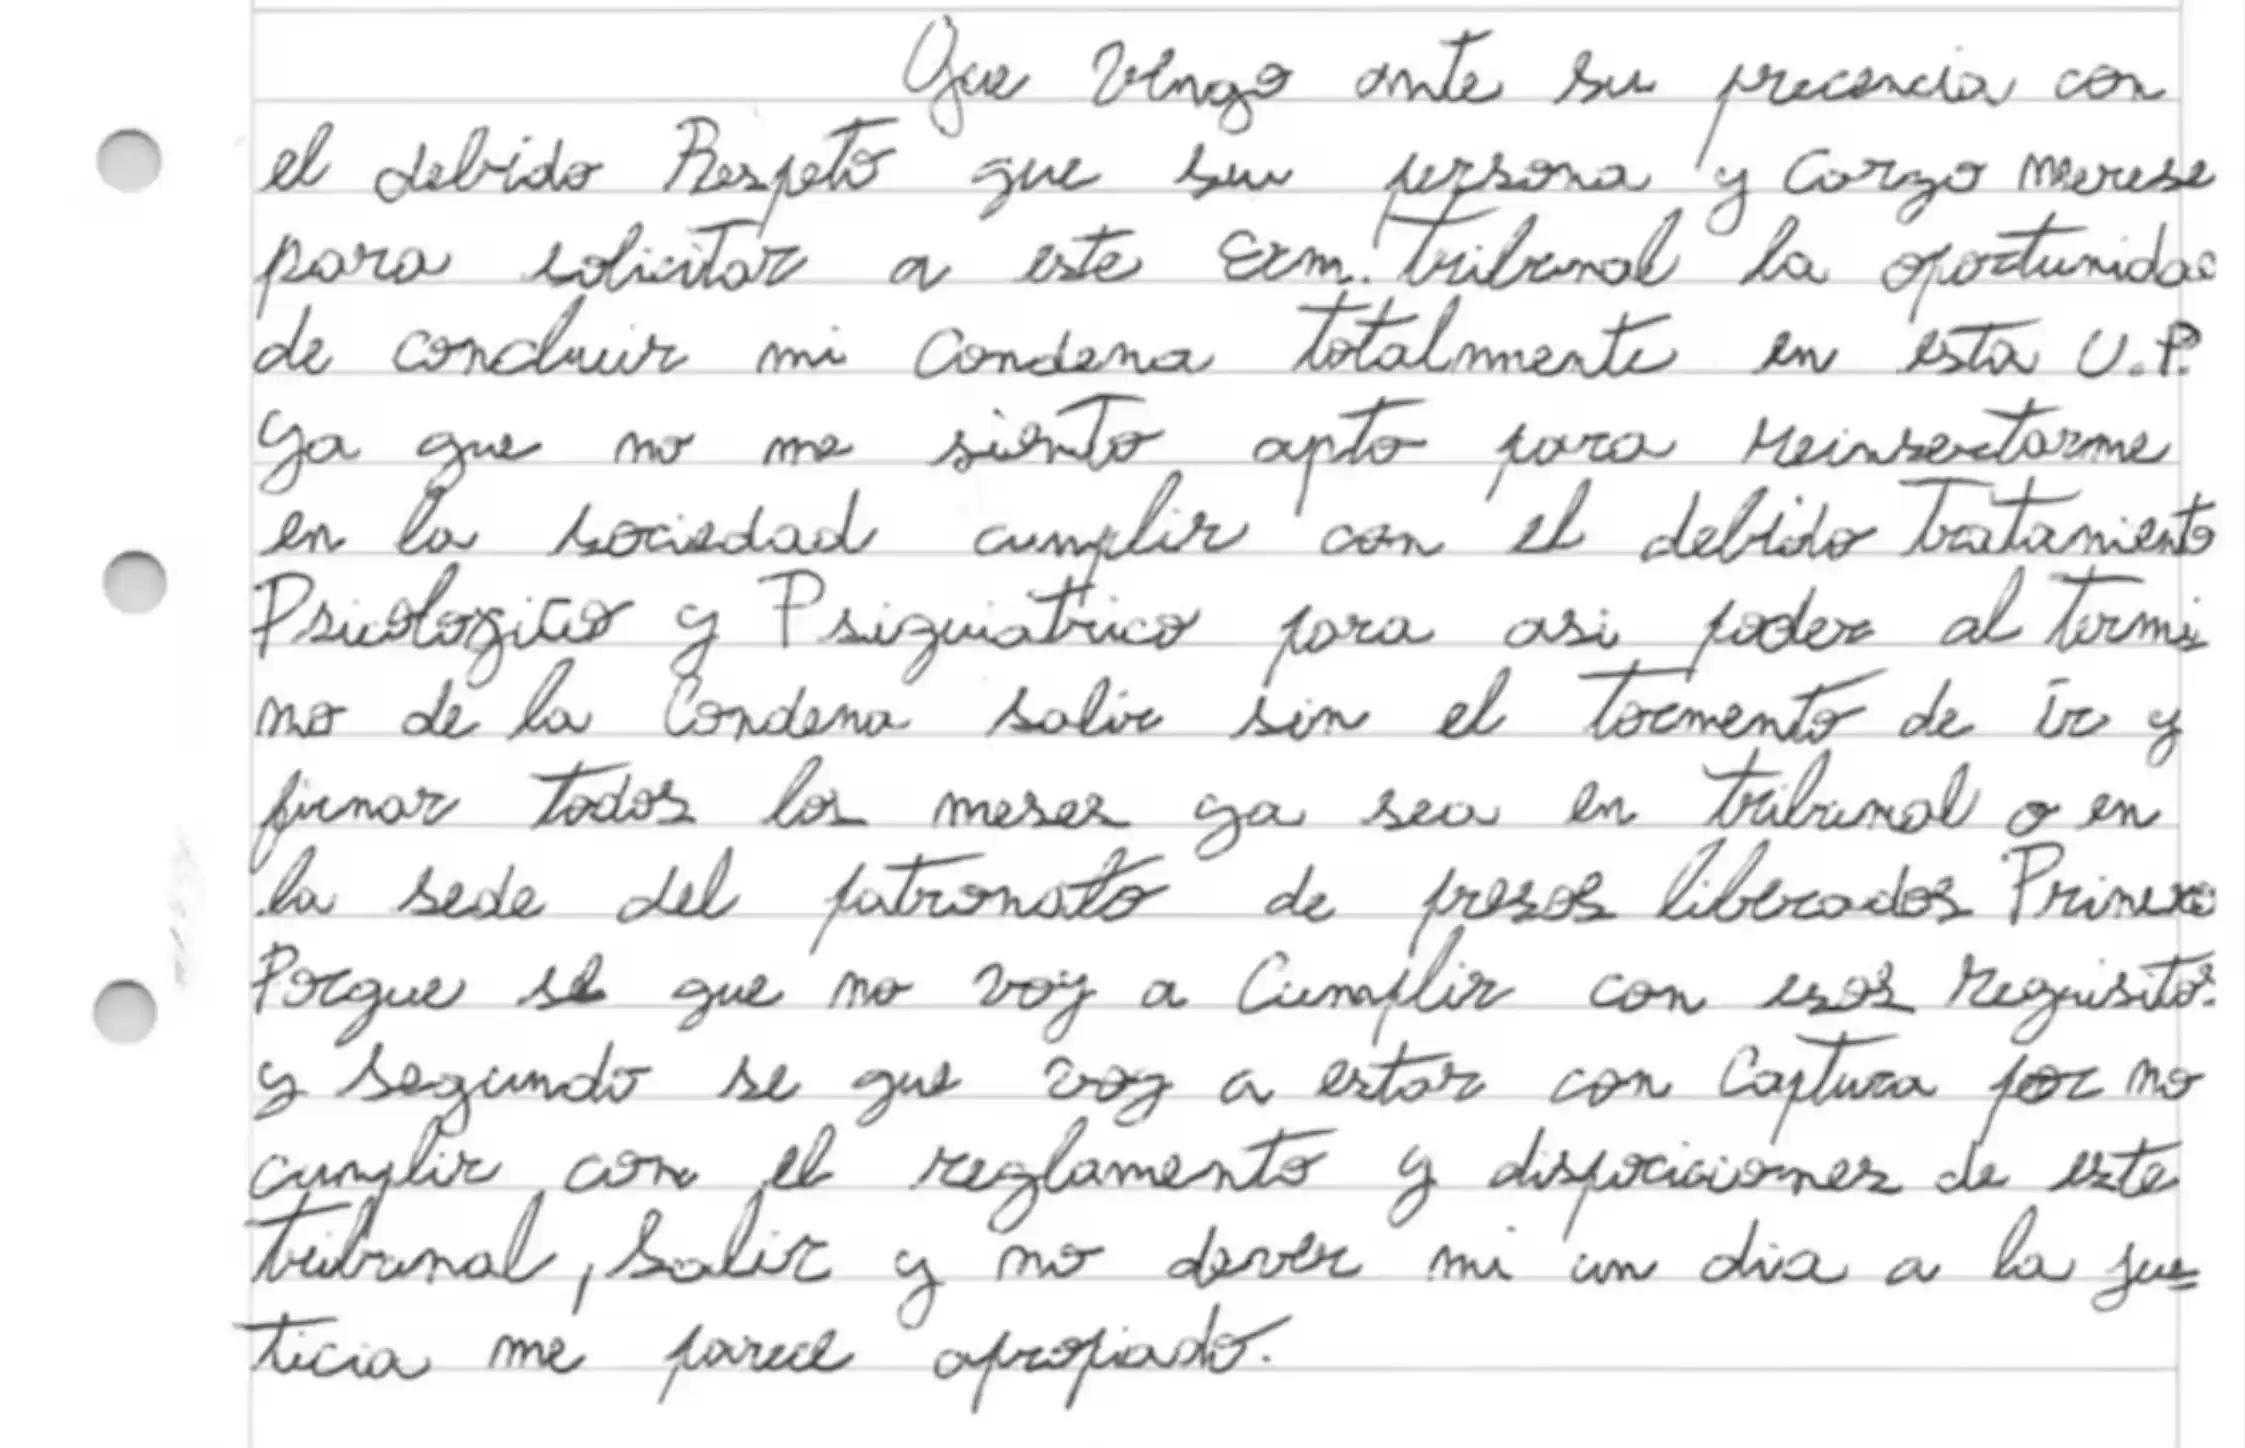 Que vengo ante su precencia con
el debido Respeto que su persona y Cargo merese
para solicitar a este Exm. tribunal la oportunidad
de concluir mi Condena totalmente en esta U.P.
ya que no me siento apto para reinsertarme
en la sociedad cumplir con el debido Tratamiento
Psicologico y Psiquiatrico para asi poder al termi
no de la Condena salir sin el tormento de ir y
firmar todos los meses ya sea en tribunal o en
la sede del patronato de presos liberados Primero
Porque se que no voy a Cumplir con esos requisitos.
y segundo se que voy a estar con Captura por no
cumplir con el reglamento y disposiciones de este
tribunal, Salir y no dever ni un dia a la jus=
ticia me parece apropiado.